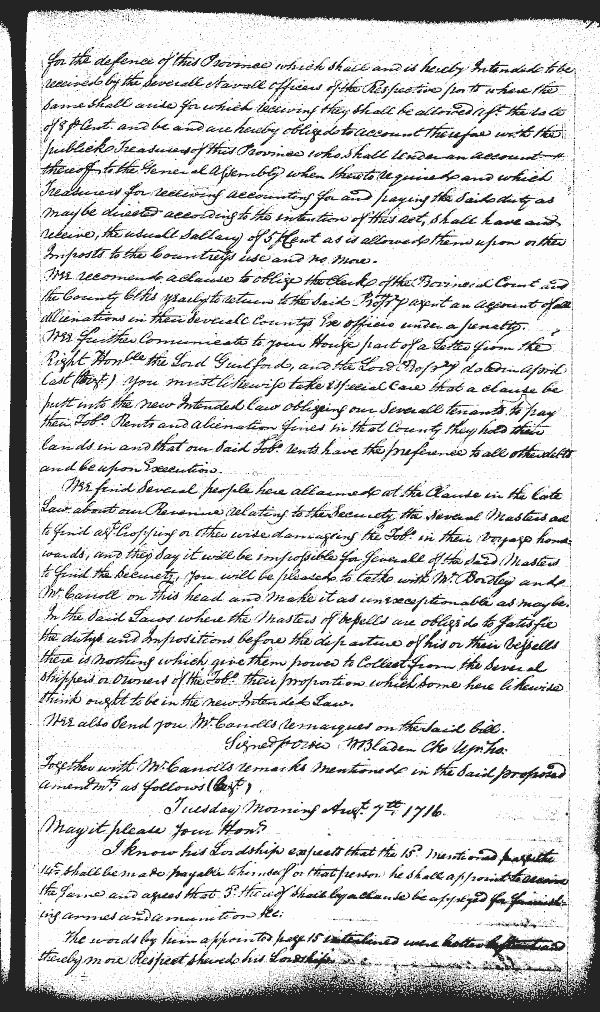 for the defence of this Province which shall and is hereby Intended to be
received by the Severall Navall Officers of the Respective ports where the
same shall arise for which receiving they shall be allowed aft. the rate
of 8 p Cent. and be and are hereby obliged to account therefore with the
publick Treasurers of this Province who shall Under an account
thereof to the Generall Assembly when thereto required and which
Treasurers for receiving accounting for and paying the Said duty as
may be directed according to the intention of this act, Shall have and
receive, the usuall Sallary of 5 p Cent as is allowed them upon other
Imposts to the Countreys use and no more.
Wee recomend a clause to oblige the Clerk of the Provinciall Court and
the County Clks yearly to return to the Said Propry agent an account of all
alienations in their Severall Countys Ex officio under a penalty.
Wee further Comunicate to your House part of a Letter from the
Right Honble the Lord Guilford, and the Lord Propry dated in Aprill
last (Vizt) You must likewise take Especial Care that a clause be
putt into the new Intended law obligeing our Severall tenants to pay
their Tobo. Rents and alienation fines in that County they hold their
lands in and that our Said Tobo. rents have the preference to all other debts
and be upon Execution.
Wee find Severall people here allarmed at the Clause in the late
Law about our Revenue relating to the Security, the Several Masters are
to find agt. Cropping or other wise damaging the Tobo. in their Voyage home
wards, and they Say it will be impossible for Severall of the Said Masters
to find the Security, you will be pleased to talke with Mr. Bordley and
Mr. Carroll on this head and make it as unexceptionable as may be.
In the Said Laws where the Masters of Vessells are obliged to Satisfie
the dutys and Impositions before the departure of his or their Vessells
there is nothing which give them power to Collect from the Several
shippers or Owners of the Tobo. their proportion which some here likewise
think ought to be in the new Intended Law.
Wee also Send you Mr. Carrolls remarques on the said bill.
Signed p Order W Bladen Clk
Together with Mr. Carrolls remarks mentioned in the Said proposed
amendmts. as follows (Vizt.)
Tuesday Morning Augt. 7th. 1716.
May it please Your Honrs.
I know his Lordship expects that the 15d. Mentioned page the
14th. shall be made payable to himself or that person he shall appoint to receive
the Same and agrees that 3d. thereof shall by a clause be applyed for furnish-
ing armes and amunition &c:
The words by him appointed page 15 interlined were better
thereby more Respect shewed his Lordship